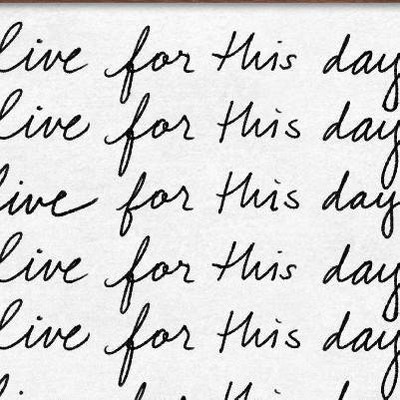 live for this day
live for this day
live for this day
live for this day
live for this day